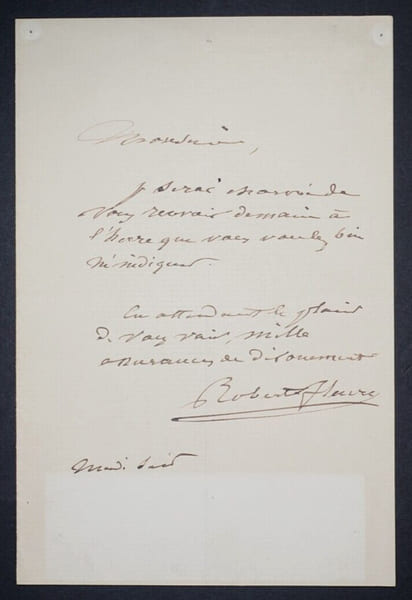 Monsieur,
je serai charmé de
vous revoir demain à
l'heure que vous voulez bien
m'indiquer.
En attendant le plaisir
de vous voir, mille
assurances de dévouement
Robert Fleury
Mardi soir